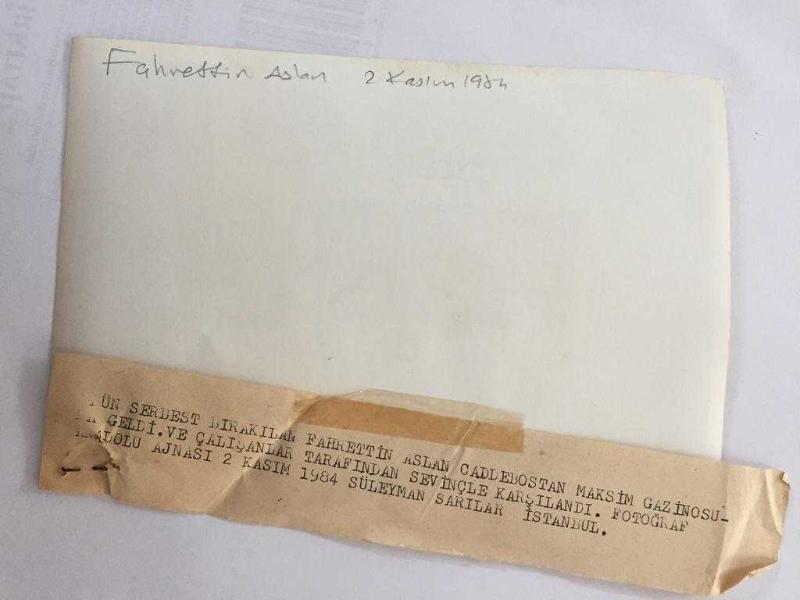 Fahrettin Aslan 2 Kasım 1984
ÜN SERBEST BIRAKILAN FAHRETTİN ASLAN CADLEBOSTAN MAKSİM GAZİNOSU_
GELDİ.VE ÇALIŞANLAR TARAFINDAN SEVİNÇLE KARŞILANDI. FOTOĞRAF
AJNASI 2 KASIM 1984 SÜLEYMAN SARILAR İSTANBUL.